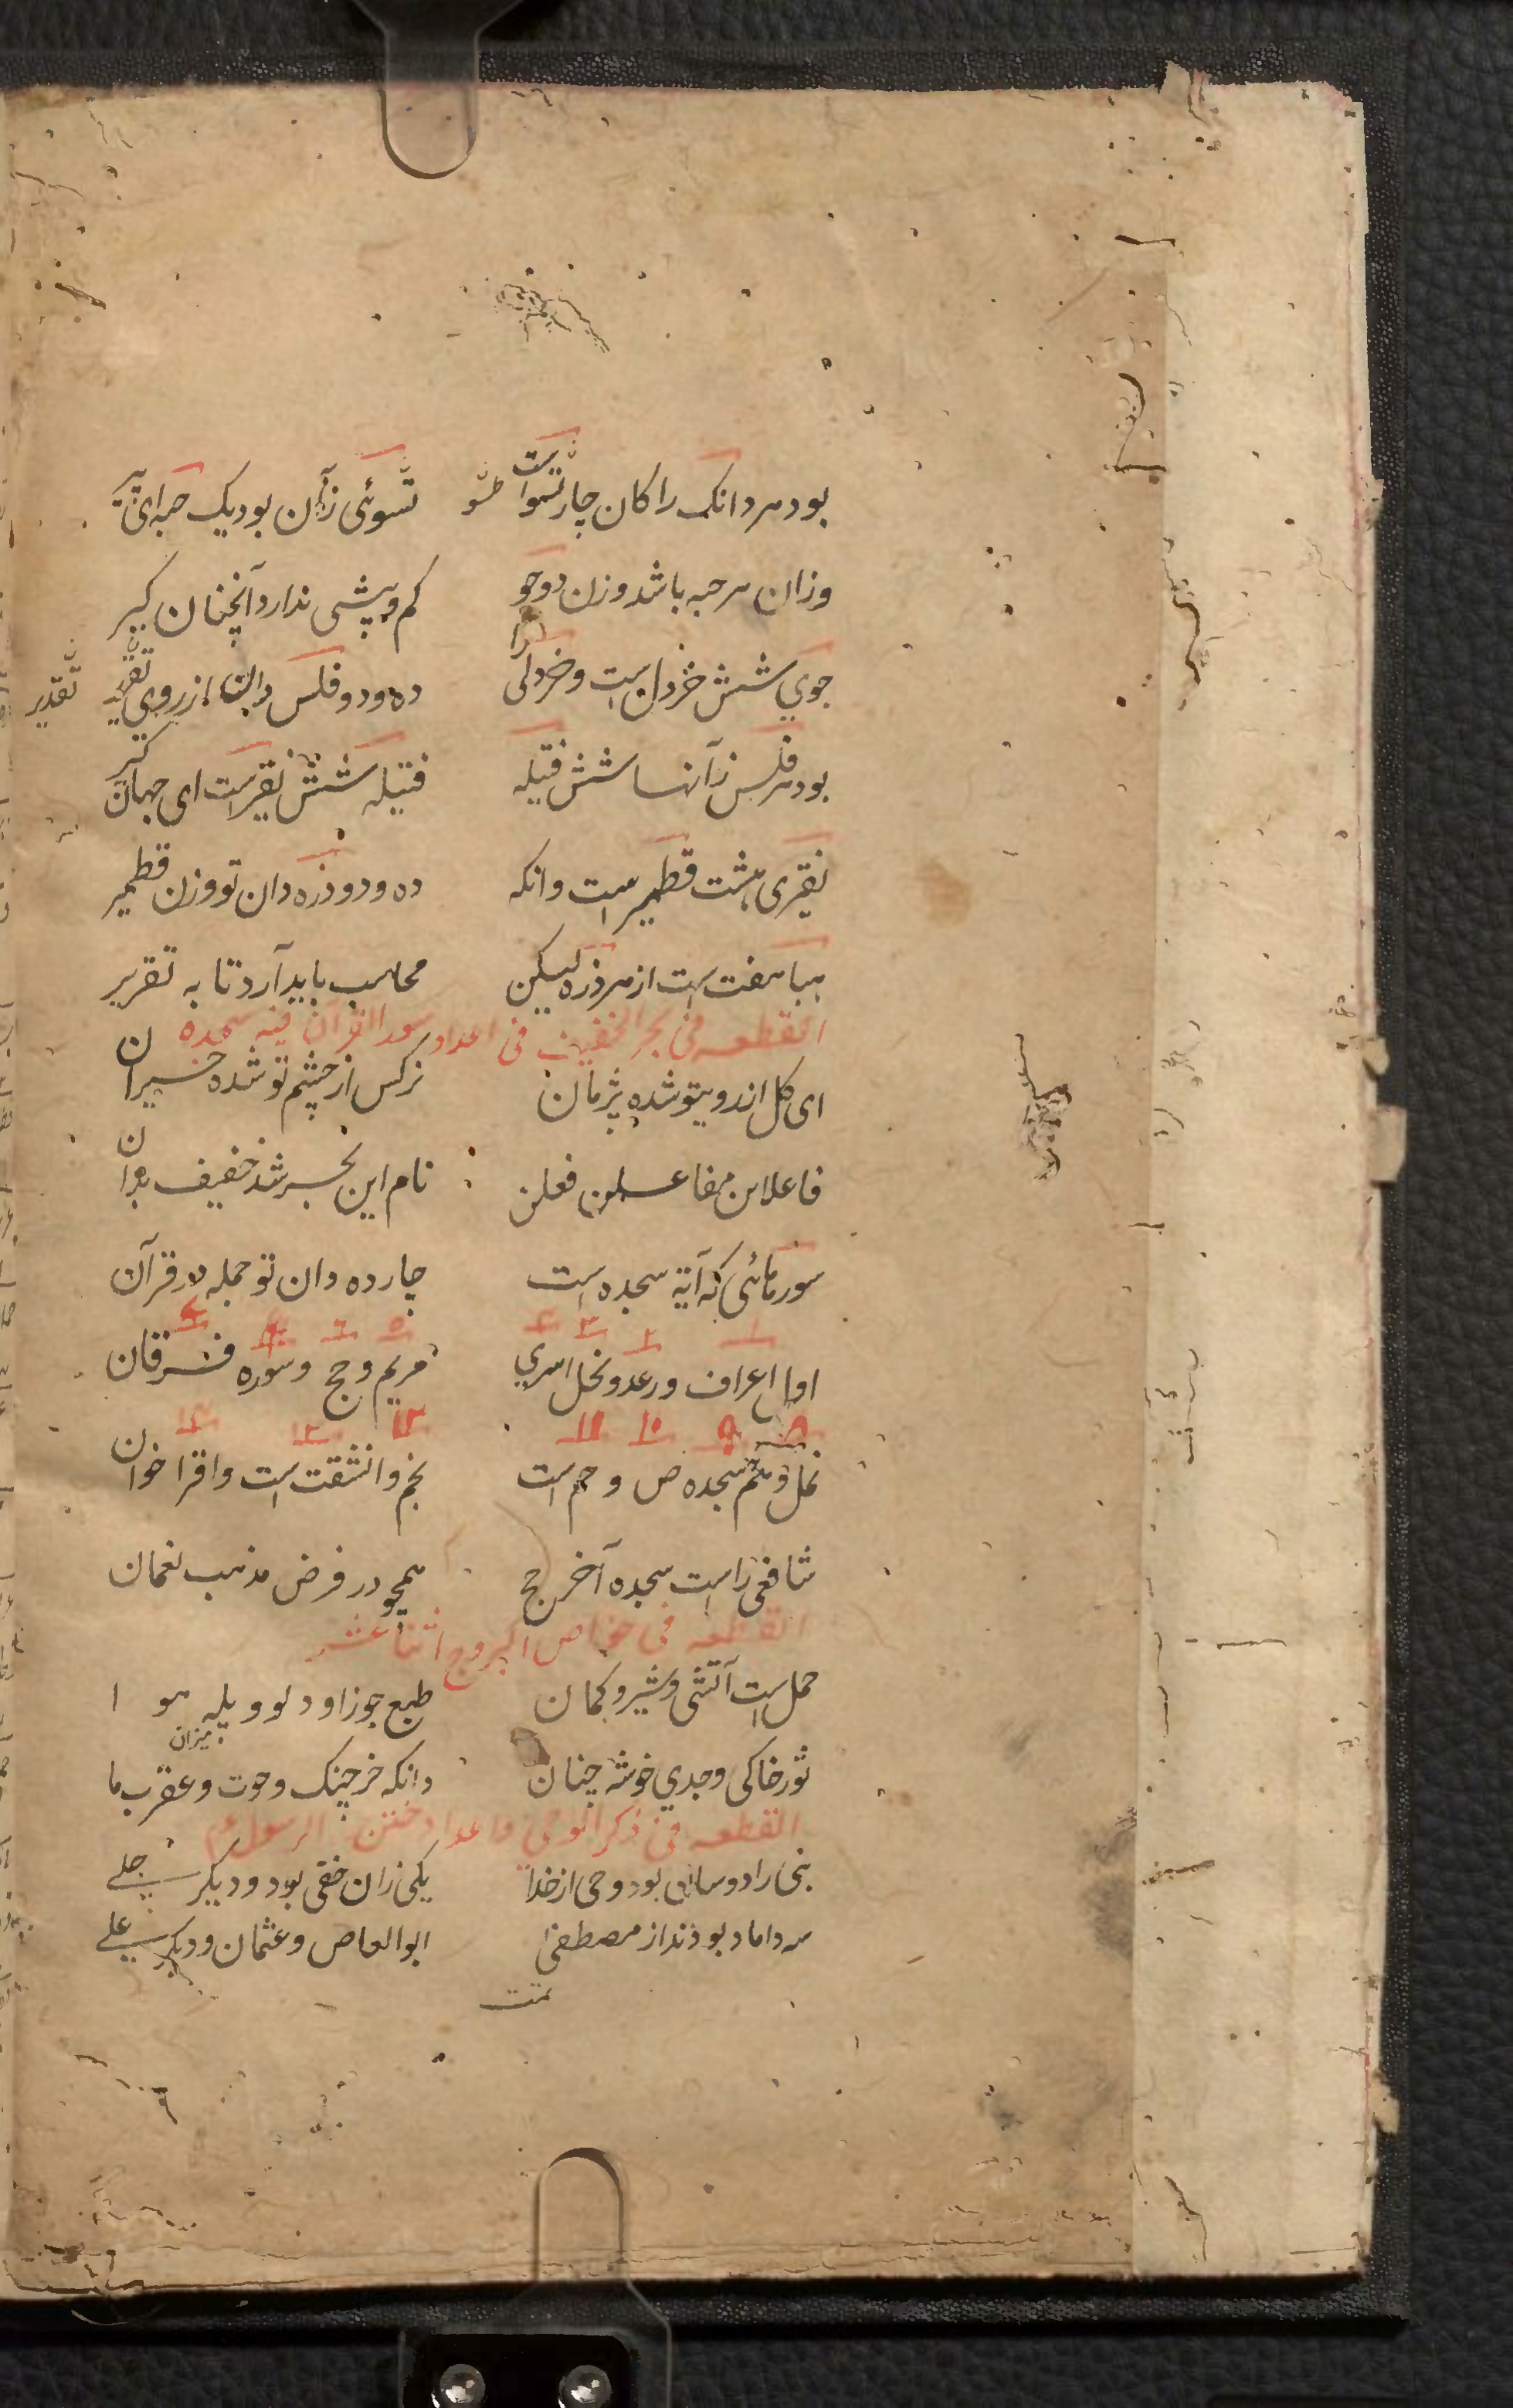 بود هر دانک را کان چار تسوا ست تسوئی زان بود یک حبه ای
وزان هر حبه باشد وزن دو جو کم و بیشی ندارد آنچنان کیر
جوي شش خردل است و خردلی را ده و دو فلس دان از روی تقدیر
تقدیر
بود هر فلس زآنها شش فتیله فتیله شش نقیر است ای جهان کیر
نقیری هشت قطمیر است وانکه ده و دو ذره دان تو وزن قطمیر
هبا هفت است از هر ذره لیکن محاسب باید آرد تا به تقریر
القطعه فی بحر الخفیف فی اعداد سور القران فیه سجده
ای کل از رو یتو شده پژمان نرکس از چشم تو شده حیران
فاعلاتن مفاعلن فعلن نام این بحر شد خفیف بدان
سورهائی که آیة سجده است چارده دان تو جمله در قرآن
اول اعراف و رعد و نحل اسري مریم و حج و سوره فرقان
۱ ۲ ۳ ۴ ۵ ۶ ۷
نمل و سجده ص و حم است نجم و انشقت است و اقرا خوان
۸ ۹ ۱۰ ۱۱ ۱۲ ۱۳ ۱۴
شافعی راست سجده آخر حج همچو در فرض مذهب نعمان
القطعه فی خواص البروج اثنا عشر
حمل است آتشی و شیر و کمان طبع جوزا و دلو و پله هوا
میزان
ثور خاکی و جدي خوشه چنان وانکه خرچنک و حوت و عقرب ما
القطعه فی ذکر الوحی و اعداد ختن الرسول عم
نبی را دو سان بود وحی از خدا یکی زان خفی بود و دیکر جلے
سه داماد بودند از مصطفی ابوالعاص و عثمان و دیکر علے
تمت